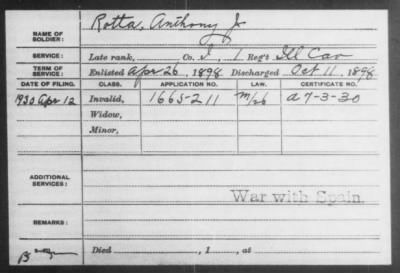 NAME OF SOLDIER: Rotta, Anthony J
SERVICE: Late rank, Co. I, 1 Reg't Ill Cav
TERM OF SERVICE: Enlisted Apr 26, 1898 Discharged Oct 11, 1898
DATE OF FILING. CLASS. APPLICATION NO. LAW. CERTIFICATE NO.
1930 Apr 12 Invalid, 1665-211 M/26 A 7-3-30
Widow,
Minor,
ADDITIONAL SERVICES:
War with Spain.
REMARKS:
Died , 1 , at